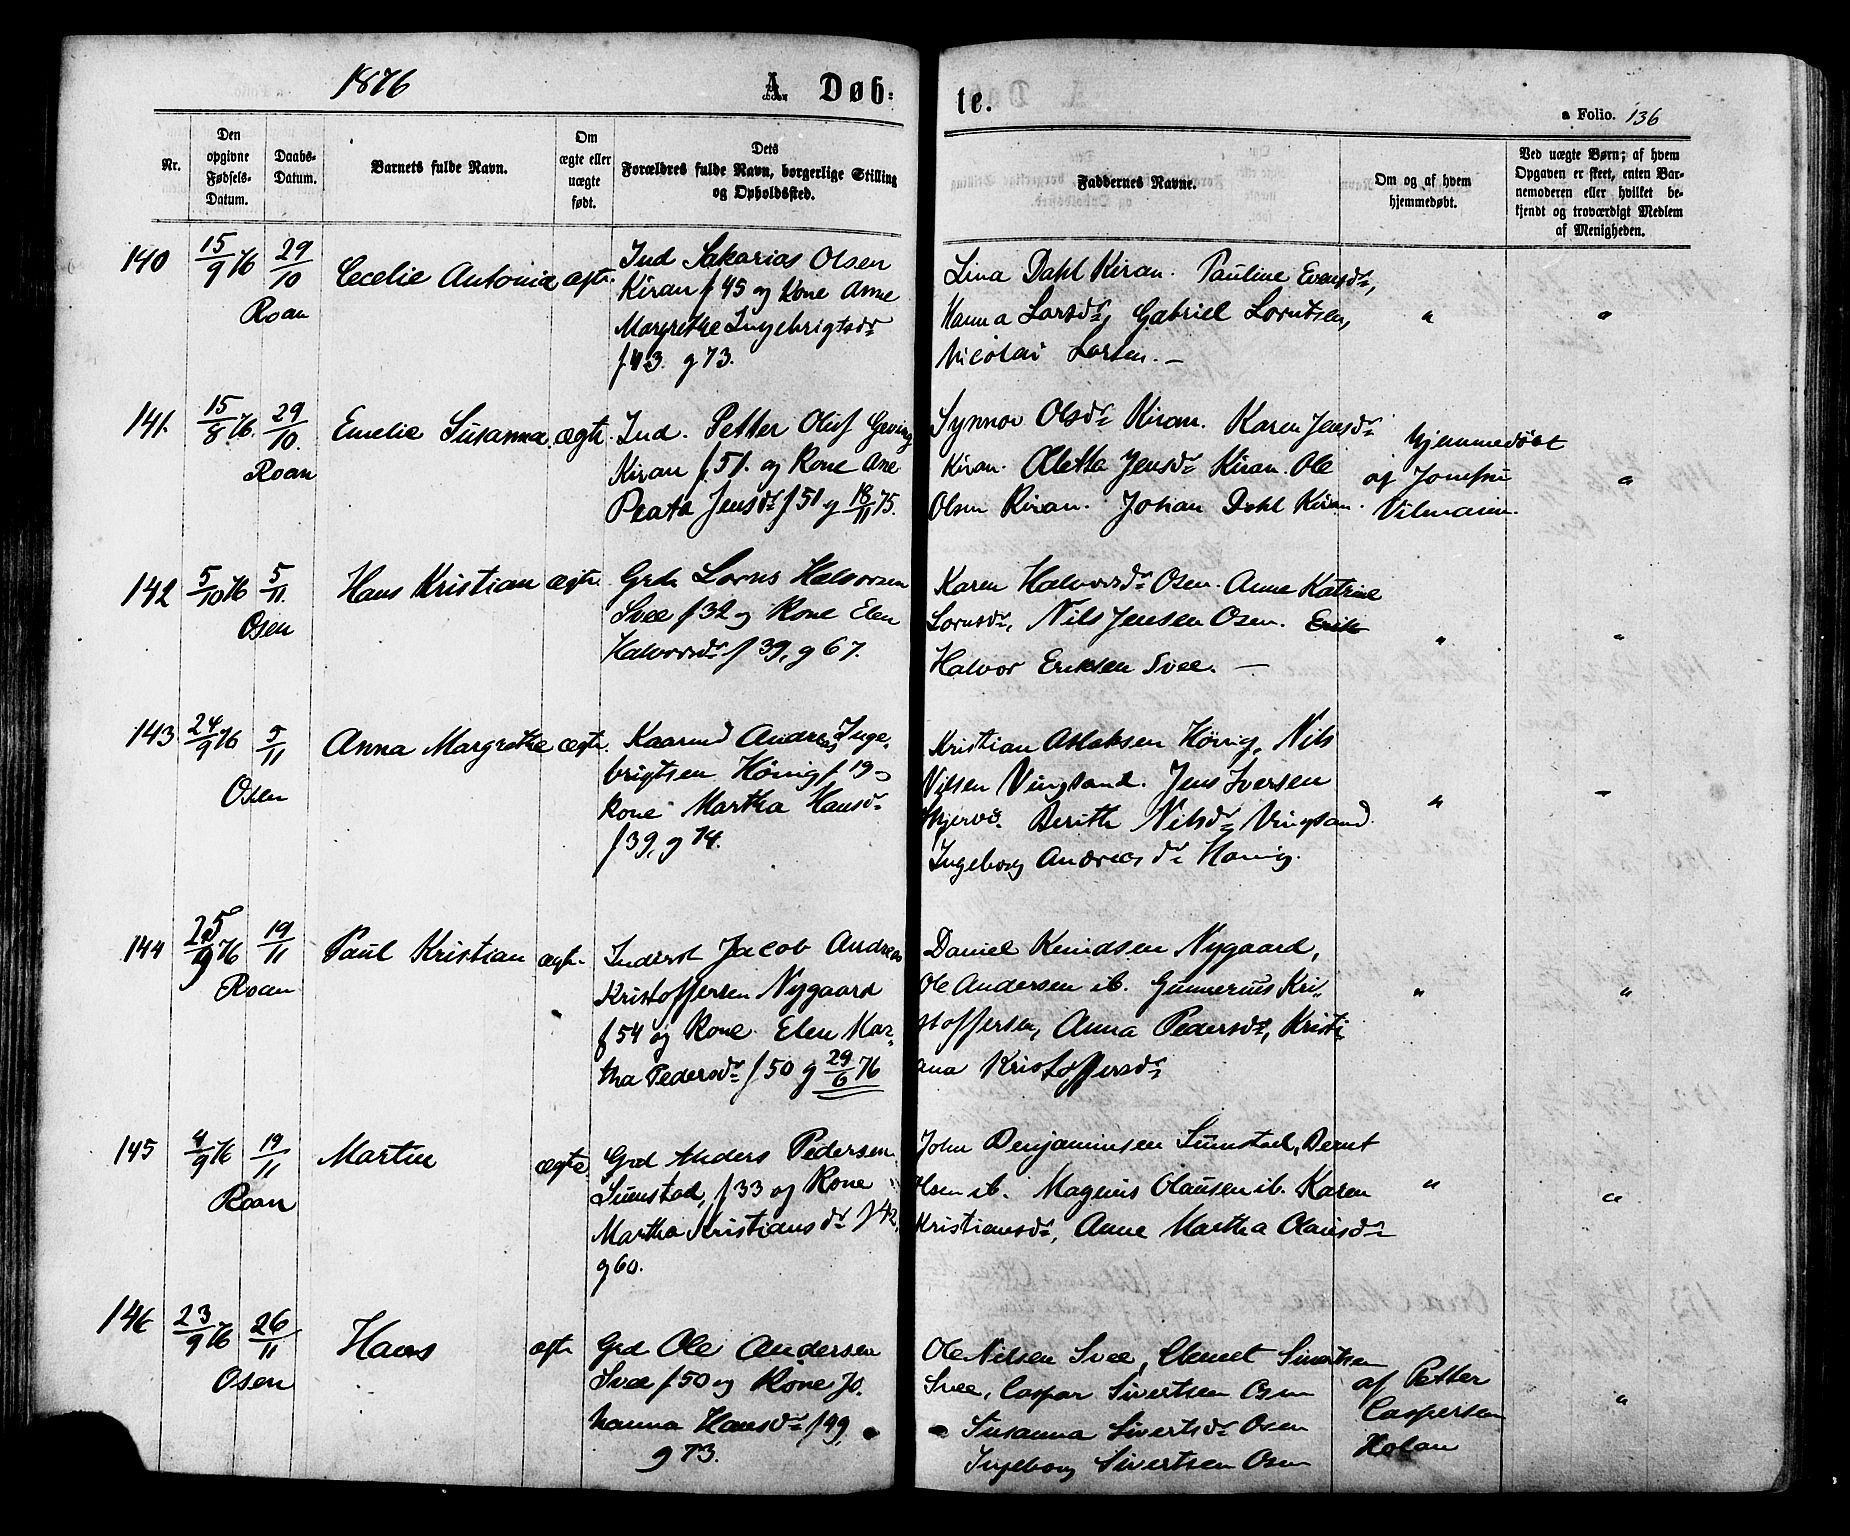 1876
A. Døb-
te.
a Folio. 136
Nr.
Den
opgivne
Fødsels-
Datum.
Daabs-
Datum.
Barnets fulde Navn.
Om
ægte eller
uægte
født.
Dets
Forældres fulde Navn, borgerlige Stilling
og Opholdssted.
Faddernes Navne.
Om og af hvem
hjemmedøbt.
Ved uægte Børn; af hvem
Opgaven er skeet, enten Bar-
nemoderen eller hvilket be-
kjendt og troværdigt Medlem
af Menigheden.
140 15/9 76 29/10 Cecelie Antonie ægte.
Roan
Ind Sakarias Olsen
Kiran f 45 og Kone Anne
Margrethe Ingebrigtsdr
f.43. g 73.
Lina Dahl Kiran. Pauline Evensdr,
Hanna Larsdr, Gabriel Lorntsen,
Nicolai Larsen. —
" "
141. 15/8 76. 29/10. Emelie Susanna. ægte.
Roan
Ind. Petter Oluf Gaving
Kiran f. 51. og Kone Ane
Peata Jensdr f 51 g 18/11 75.
Synnov Olsdr Kiran. Karen Jensdr
Kiran. Oletta Jensdr Kiran. Ole
Olsen Kiran. Johan Dahl Kiran.
hjemmedøbt
af Jomfru
Vilmann.
"
142 5/10 76 5/11. Hans Kristian ægte.
Osen
Grd. Lorns Halvorsen
Svee f 32 og Kone Elen
Halvorsdr f 39, g 67.
Karen Halvorsdr Osen. Anne Katrine
Lornsdr, Nils Jensen Osen. Erik
Halvor Eriksen Svee. —
" "
143 24/9 76 5/11 Anna Margrethe ægte.
Osen
Kaarmd Andreas Inge-
brigtsen Hönig f 19 o
Kone Martha Hansdr
f 39, g 74.
Kristian Aslaksen Hönig, Nils
Nilsen Vingsand. Jens Iversen
Berith Nilsdr Vingsand.
Ingeborg Andreasdr Hönig.
" "
144 25/9 76 19/11 Paul Kristian ægte.
Roan
Inderst Jacob Andreas
Kristoffersen Nygaard
f 54 og Kone Elen Mar-
tha Pedersdr f 50 g 29/6 76
Daniel Knudsen Nygaard,
Ole Andersen ib. Gunnerius Kri-
stoffersen, Anna Pedersdr, Kristi-
ana Kristoffersdr
" "
145 4/9 76 19/11 Martin ægte
Roan
Grd Anders Pedersen
Sumstad, f 33 og Kone
Martha Kristiansdr f 42,
g 60.
John Benjaminsen Sumstad, Bernt
Olsen ib. Magnus Olausen ib. Karen
Kristiansdr, Anne Martha Olausdr
" "
146 23/9 76 26/11 Hans ægte
Osen
Grd Ole Andersen
Svee f 50 og Kone Jo-
hanna Hansdr f 49,
g 73.
Ole Nilsen Svee, Clemet Sivertsen
Svee, Caspar Sivertsen Osen
Susanna Sivertsdr Osen
Ingeborg Sivertsen Osen
af Petter
Caspersen
Holan
"